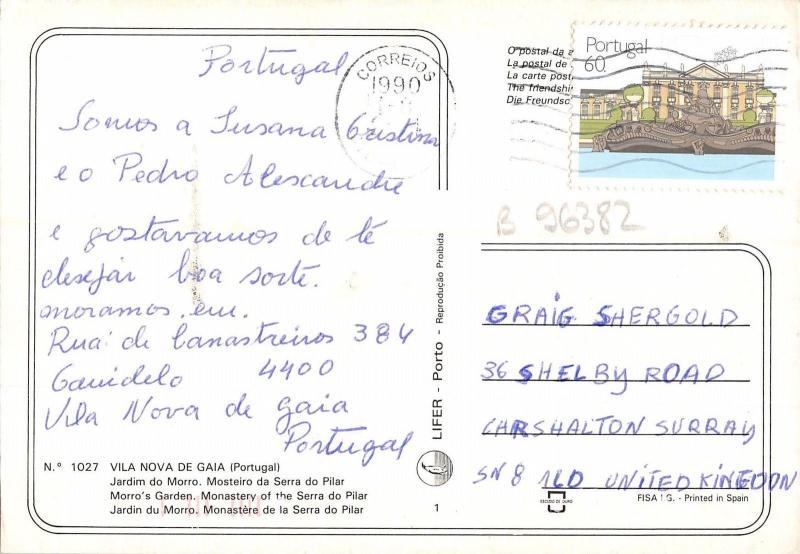 Portugal
Somos a Susana Cristina
e o Pedro Alescandre
e gostavamos de té
desejar boa sorte.
moramos, em.
Rua: de Canastreiros 384
Canidelo 4400
Vila Nova de gaia
Portugal
N.º 1027 VILA NOVA DE GAIA (Portugal)
Jardim do Morro. Mosteiro da Serra do Pilar
Morro's Garden. Monastery of the Serra do Pilar
Jardin du Morro. Monastère de la Serra do Pilar
CORREIOS
1990
LIFER - Porto - Reprodução Proibida
1
O postal da a
La postal de
La carte post
The friendshi
Die Freundsc
Portugal
60
B 96382
GRAIG SHERGOLD
36 SHELBY ROAD
CARSHALTON SURRAY
SN8 1LD UNITED KINGDON
ESCUDO DE OURO
FISA I.G. - Printed in Spain